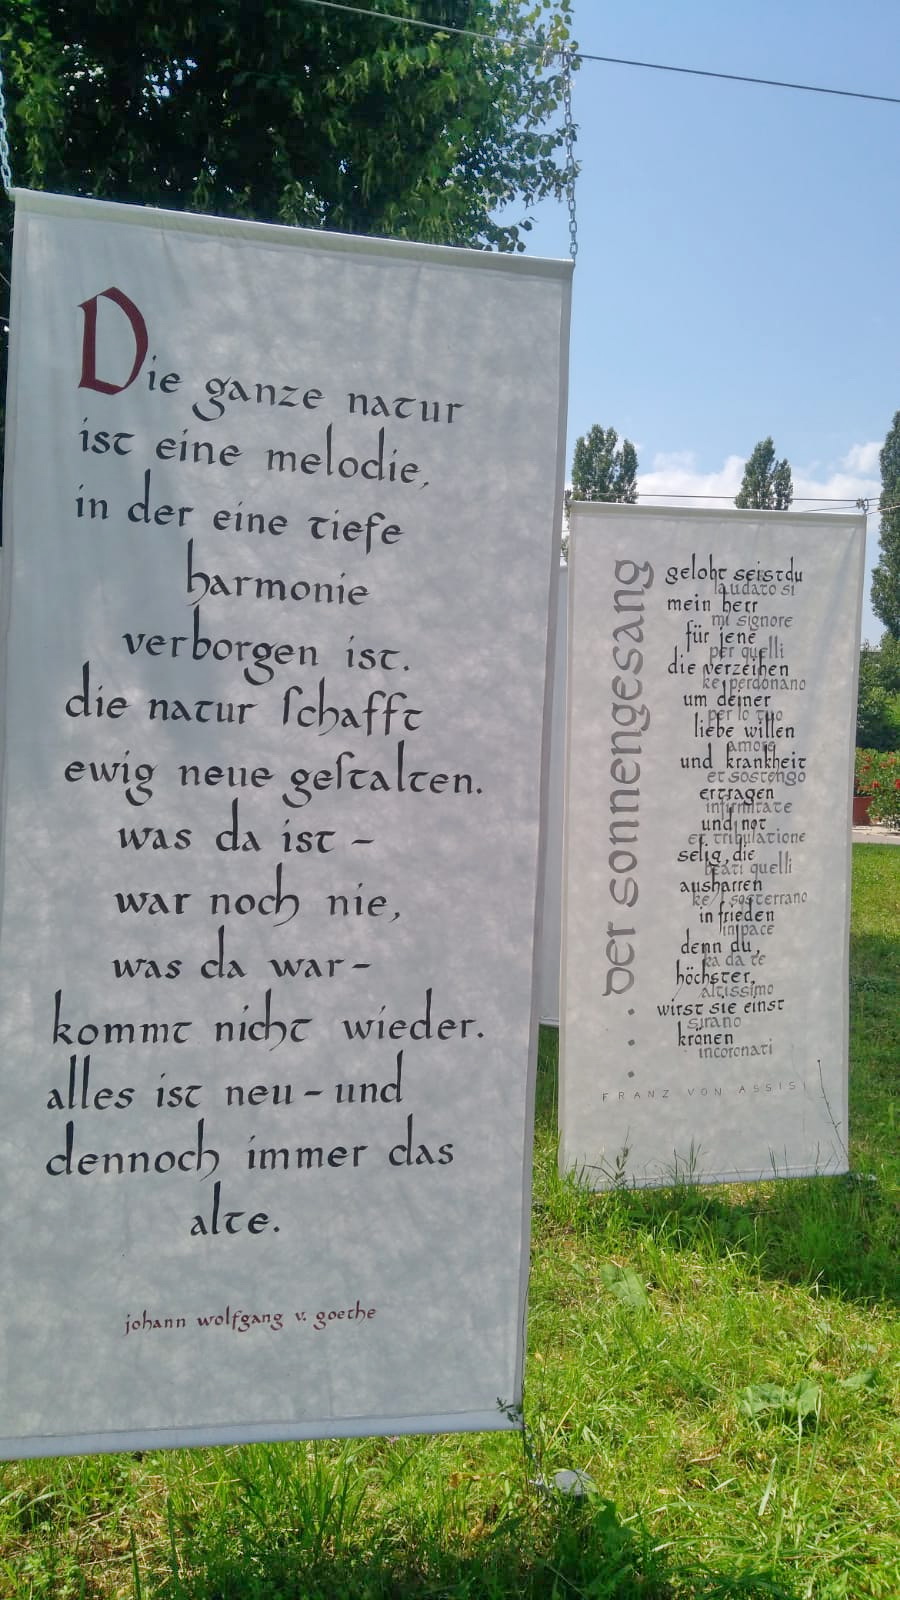 Die ganze natur
ist eine melodie,
in der eine tiefe
harmonie
verborgen ist.
die natur ſchafft
ewig neue geſtalten.
was da ist –
war noch nie,
was da war –
kommt nicht wieder.
alles ist neu – und
dennoch immer das
alte.
johann wolfgang v. goethe
der sonnengesang...
gelobt seist du
laudato si
mein herr
mi signore
für jene
per quelli
die verzeihen
ke perdonano
um deiner
per lo tuo
liebe willen
amore
und krankheit
et sostengo
ertragen
infirmitate
und not
et tribulatione
selig, die
beati quelli
ausharren
ke / sosterrano
in frieden
in pace
denn du,
ka da te
höchster,
altissimo
wirst sie einst
sirano
krönen
incoronati
FRANZ VON ASSISI